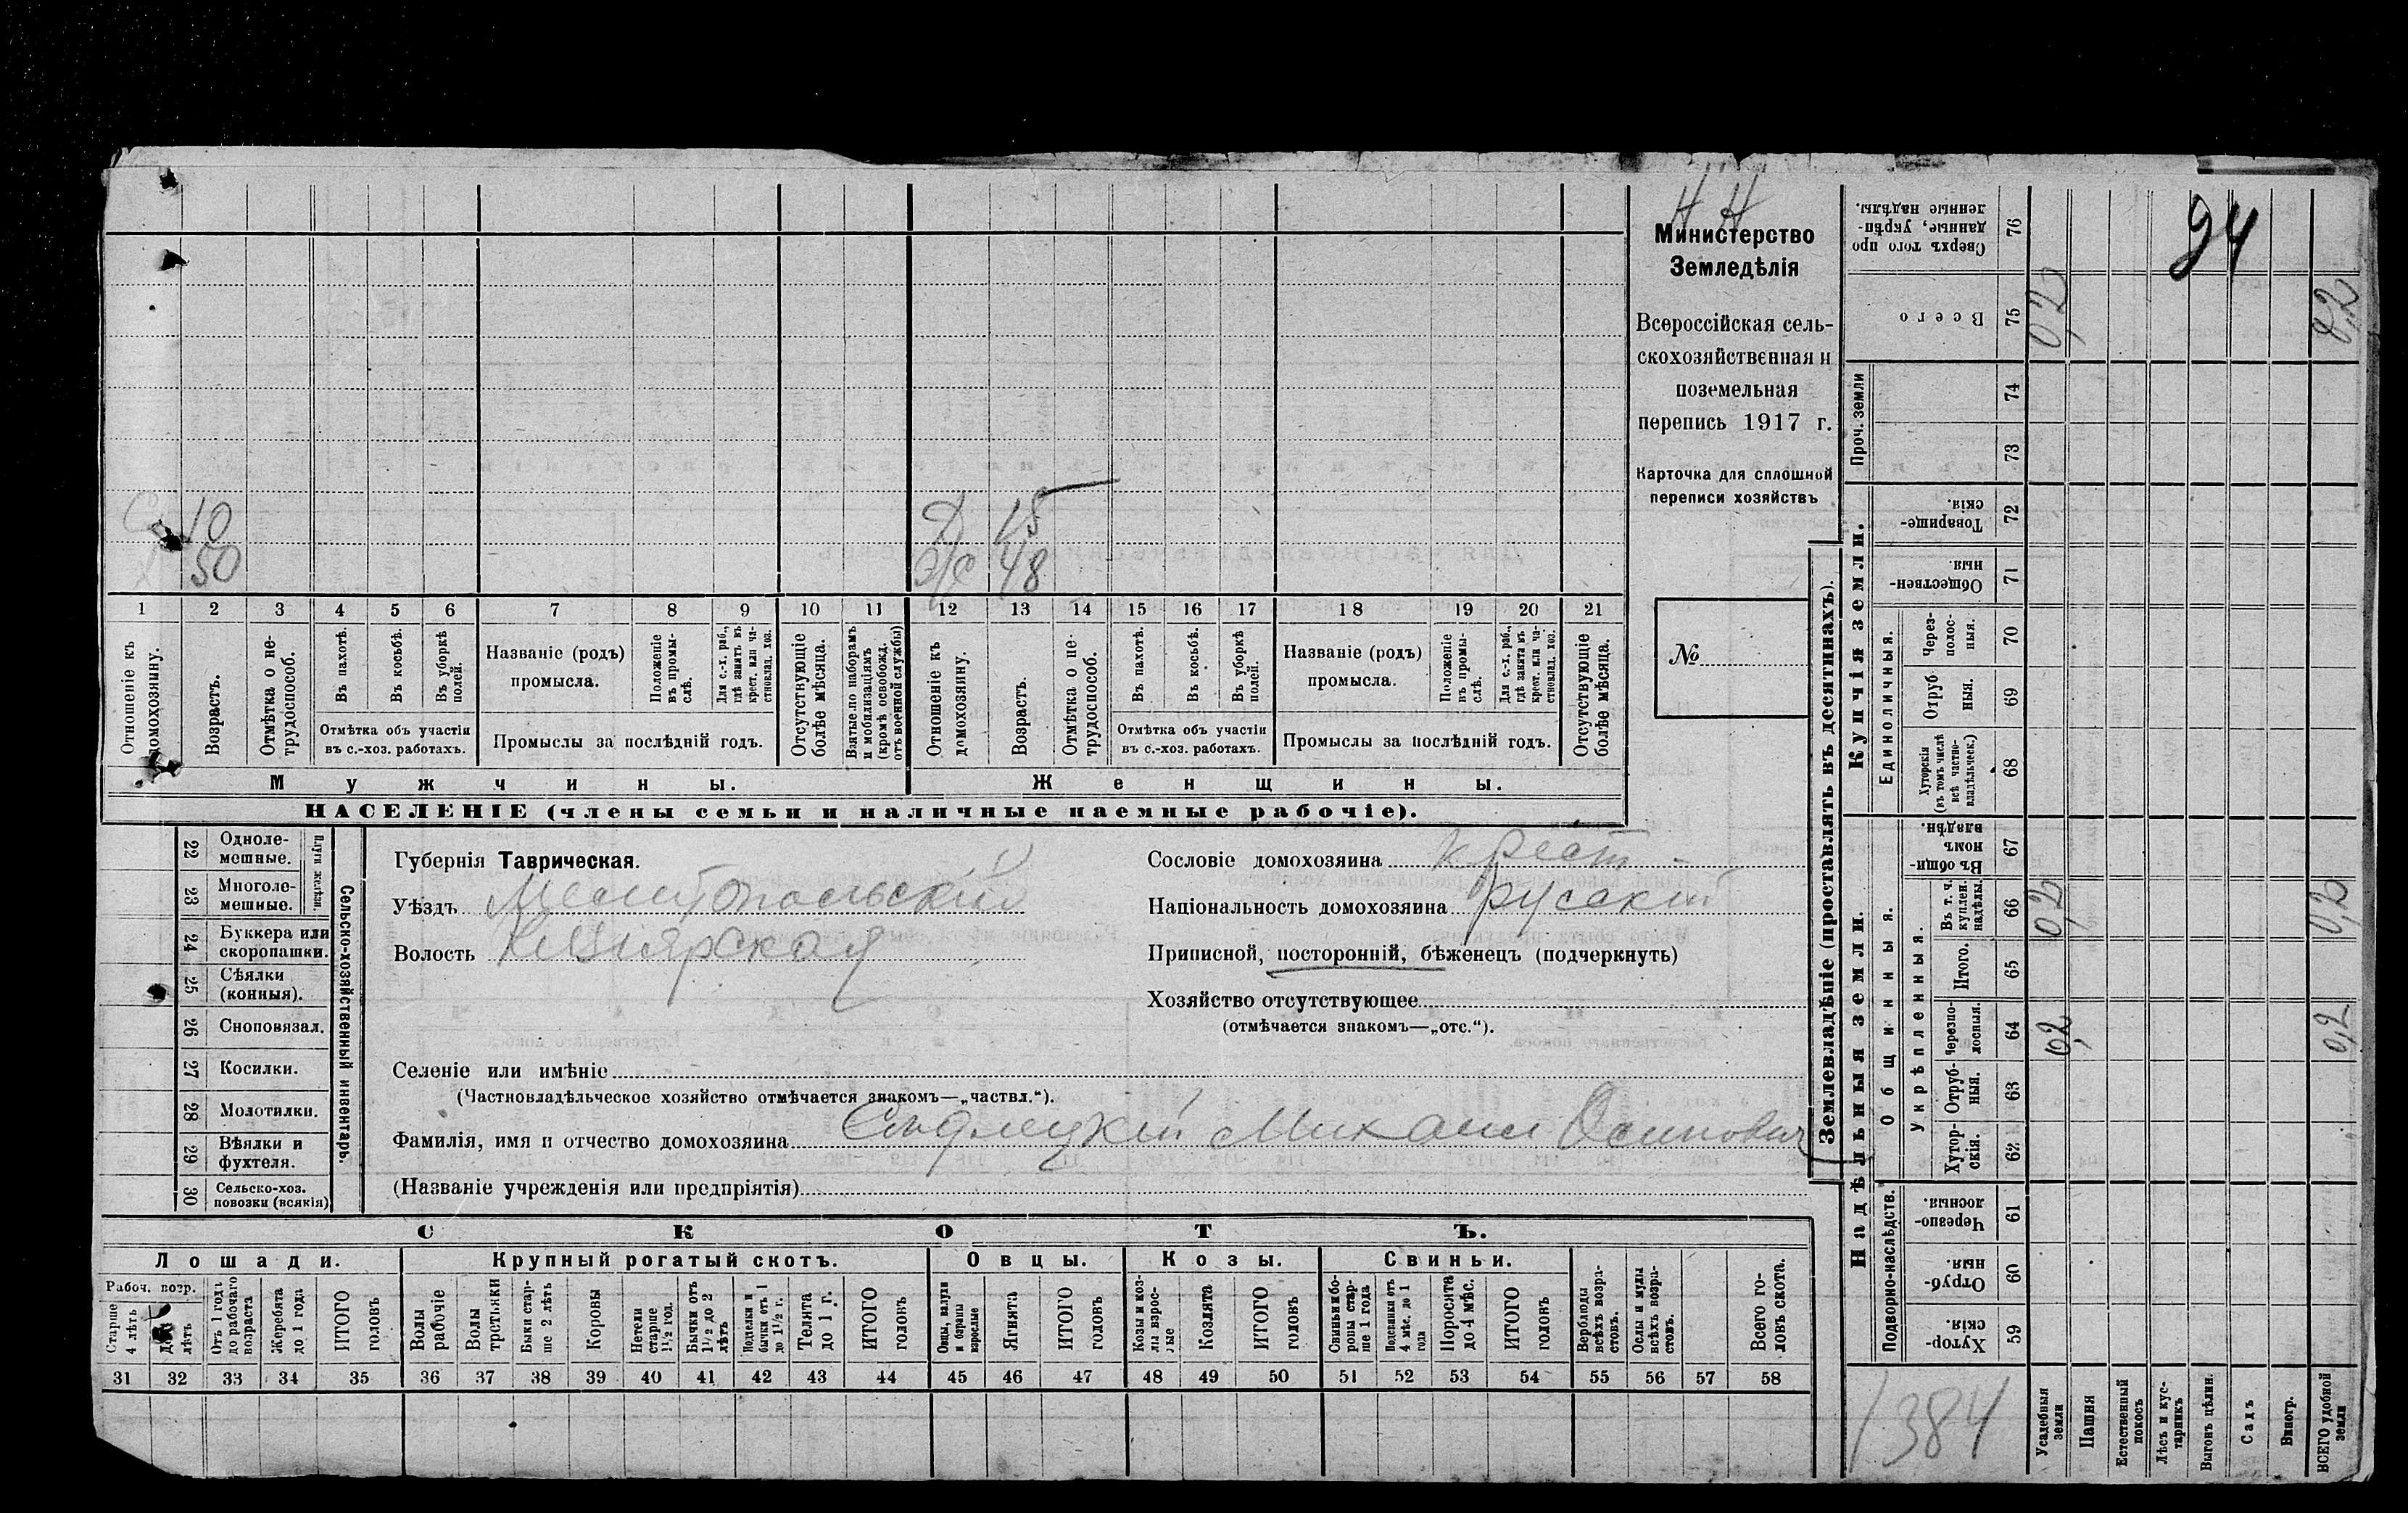 Н Н
Министерство
Земледѣлія
Всероссійская сель-
скохозяйственная и
поземельная
перепись 1917 г.
Карточка для сплошной
переписи хозяйствъ
№
С 10
50
Д 15
ж 48
1 2 3 4 5 6 7 8 9 10 11 12 13 14 15 16 17 18 19 20 21
Отношеніе къ домохозяину.
Возрастъ.
Отмѣтка о не-трудоспособ.
Въ пахотѣ.
Въ косьбѣ.
Въ уборкѣ полей.
Отмѣтка объ участіи
въ с.-хоз. работахъ.
Названіе (родъ)
промысла.
Положеніе въ промы-слѣ.
Для с.-х. раб., гдѣ занятъ въ крест. или ча-стновлад. хоз.
Промыслы за послѣдній годъ.
Отсутствующіе болѣе мѣсяца.
Взятые по наборамъ и мобилизаціямъ (кромѣ освобожд. отъ военной службы)
Отношеніе къ домохозяину.
Возрастъ.
Отмѣтка о не-трудоспособ.
Въ пахотѣ.
Въ косьбѣ.
Въ уборкѣ полей.
Отмѣтка объ участіи
въ с.-хоз. работахъ.
Названіе (родъ)
промысла.
Положеніе въ промы-слѣ.
Для с.-х. раб., гдѣ занята въ крест. или ча-стновлад. хоз.
Промыслы за послѣдній годъ.
Отсутствующіе болѣе мѣсяца.
Мужчины.
Женщины.
НАСЕЛЕНІЕ (члены семьи и наличные наемные рабочіе).
Сельско-хозяйственный инвентарь.
Плуги желѣзн.
22 Одноле-мешные.
23 Многоле-мешные.
24 Буккера или скоропашки.
25 Сѣялки (конныя).
26 Сноповязал.
27 Косилки.
28 Молотилки.
29 Вѣялки и фухтеля.
30 Сельско-хоз. повозки (всякія)
Губернія Таврическая.
Уѣздъ Мелитопольскій
Волость Кизіярская
Сословіе домохозяина крест.
Національность домохозяина русскій
Приписной, посторонній, бѣженецъ (подчеркнуть)
Хозяйство отсутствующее
(отмѣчается знакомъ—„отс.“).
Селеніе или имѣніе
(Частновладѣльческое хозяйство отмѣчается знакомъ—„частвл.“).
Фамилія, имя и отчество домохозяина Михаил Осипович
(Названіе учрежденія или предпріятія)
СКОТЪ.
Лошади.
Крупный рогатый скотъ.
Овцы.
Козы.
Свиньи.
Рабоч. возр.
Старше 4 лѣтъ
лѣтъ
Отъ 1 года до рабочаго возраста
Жеребята до 1 года
ИТОГО головъ
Волы рабочіе
Волы третьяки
Быки стар-ше 2 лѣтъ
Коровы
Нетели старше 1½ год.
Бычки отъ 1½ до 2 лѣтъ
Подтелки и бычки отъ 1 до 1½ г.
Телята до 1 г.
ИТОГО головъ
Овцы, валухи и бараны взрослые
Ягнята
ИТОГО головъ
Козы и коз-лы взрос-лые
Козлята
ИТОГО головъ
Свиньи и бо-ровы стар-ше 1 года
Подсвинки отъ 4 мѣс. до 1 года
Поросята до 4 мѣс.
ИТОГО головъ
Верблюды всѣхъ возра-стовъ.
Ослы и мулы всѣхъ возра-стовъ.
Всего го-ловъ скота.
31 32 33 34 35 36 37 38 39 40 41 42 43 44 45 46 47 48 49 50 51 52 53 54 55 56 57 58
Землевладѣніе (проставлять въ десятинахъ).
Надѣльныя земли.
Купчія земли.
Проч. земли
Подворно-наслѣдств.
Общинныя.
Укрѣпленныя.
Единоличныя.
Хутор-скія. 59
Отруб-ныя. 60
Черезпо-лосныя. 61
Хутор-скія. 62
Отруб-ныя. 63
Черезпо-лосныя. 64
Итого. 65
Въ т. ч. куплен. надѣлы. 66
Въ общи-номъ владѣн. 67
Хуторскія (въ томъ числѣ всѣ частно-владѣльческ.) 68
Отруб-ныя. 69
Через-полос-ныя. 70
Обществен-ныя. 71
Товарище-скія. 72
73
74
Всего 75
Сверхъ того про данные, укрѣп-ленные надѣлы. 76
0,2 0,2
0,2 0,2
0,2 0,2
94
1384
Усадебныя земли
Пашня
Естественный покосъ
Лѣсъ и кус-тарникъ
Выгонъ цѣлин.
Садъ
Виногр.
ВСЕГО удобной земли